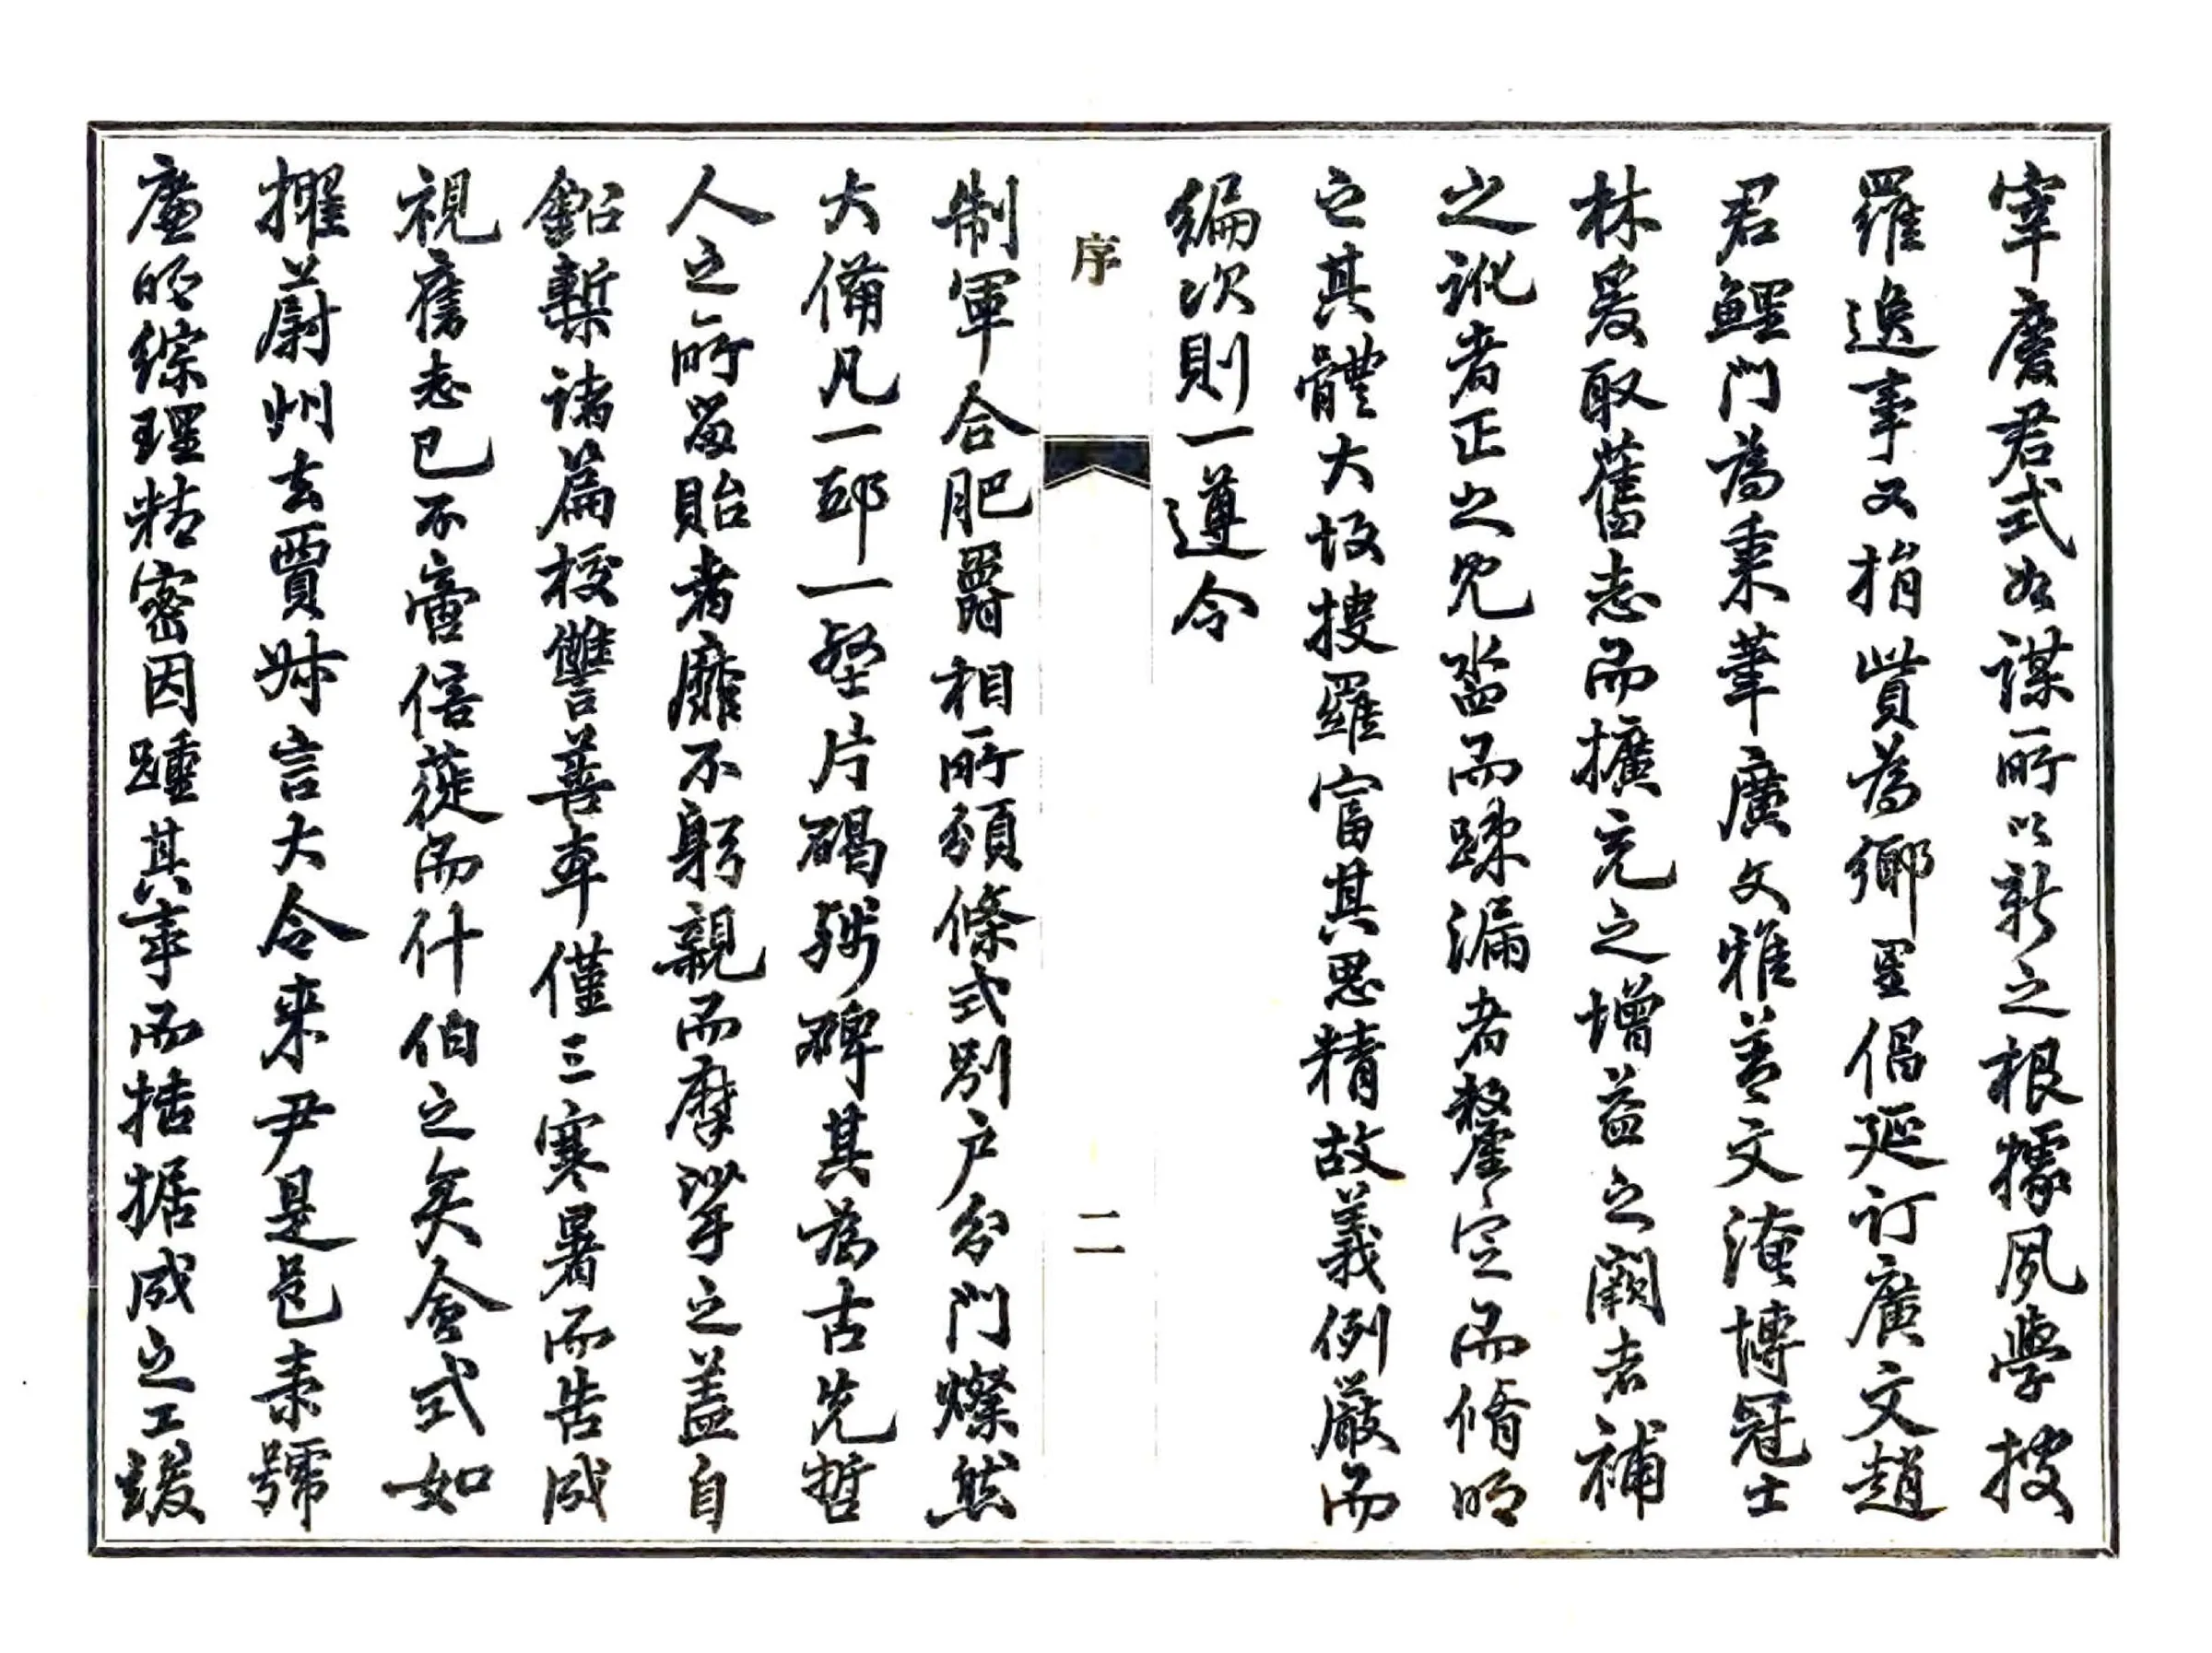 宰慶君式如謀所以新之根據夙學搜
羅逸事又捐貲為鄉里倡延訂廣文趙
君鱷門為秉筆廣文雅善文淹博冠士
林爰取舊志而擴充之增益之闕者補
之訛者正之冗沓而踈漏者釐定而脩明
之其體大故搜羅富其思精故義例嚴而
編次則一遵今
序
二
制軍合肥爵相所頒條式別户分門燦然
大備凡一邱一壑片碣殘碑其為古先哲
人之所留貽者靡不躬親而摩挲之蓋自
鉛槧諸篇挍讎善本僅三寒暑而告成
視舊志已不啻倍蓰而什伯之矣會式如
擢蔚州去賈  言大令来尹是邑素號
廉明綜理精密因踵其事而拮据成之工竣